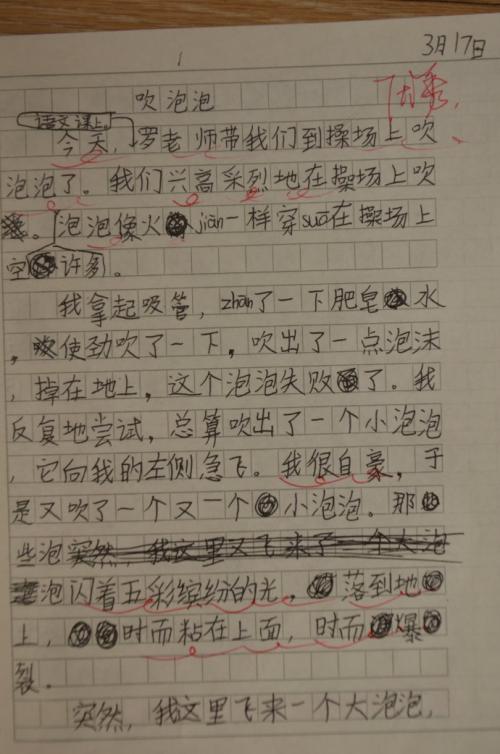 3月17日
1
吹泡泡
优秀
语文课上
今天,罗老师带我们到操场上吹
泡泡了。我们兴高采烈地在操场上吹
。泡泡像火jiàn一样穿suō在操场上
空许多。
我拿起吸管,zhàn了一下肥皂水
,使劲吹了一下,吹出了一点泡沫
,掉在地上,这个泡泡失败了。我
反复地尝试,总算吹出了一个小泡泡
,它向我的左侧急飞。我很自豪,于
是又吹了一个又一个小泡泡。那
些泡突然,我这里又飞来了一个大泡
泡闪着五彩缤纷的光。落到地
上,时而粘在上面,时而爆
裂。
突然,我这里飞来一个大泡泡,